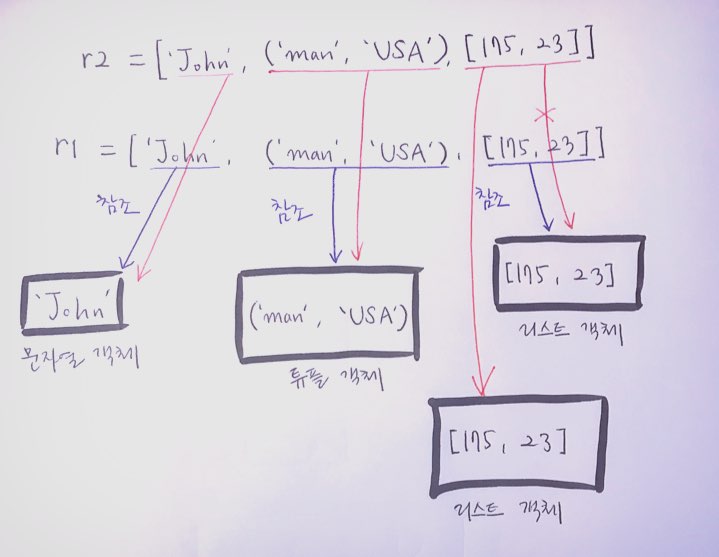 r2 = ['John', ('man', 'USA'), [175, 23]]
r1 = ['John', ('man', 'USA'), [175, 23]]
참조
참조
참조
'John'
문자열 객체
('man', 'USA')
튜플 객체
[175, 23]
리스트 객체
[175, 23]
리스트 객체